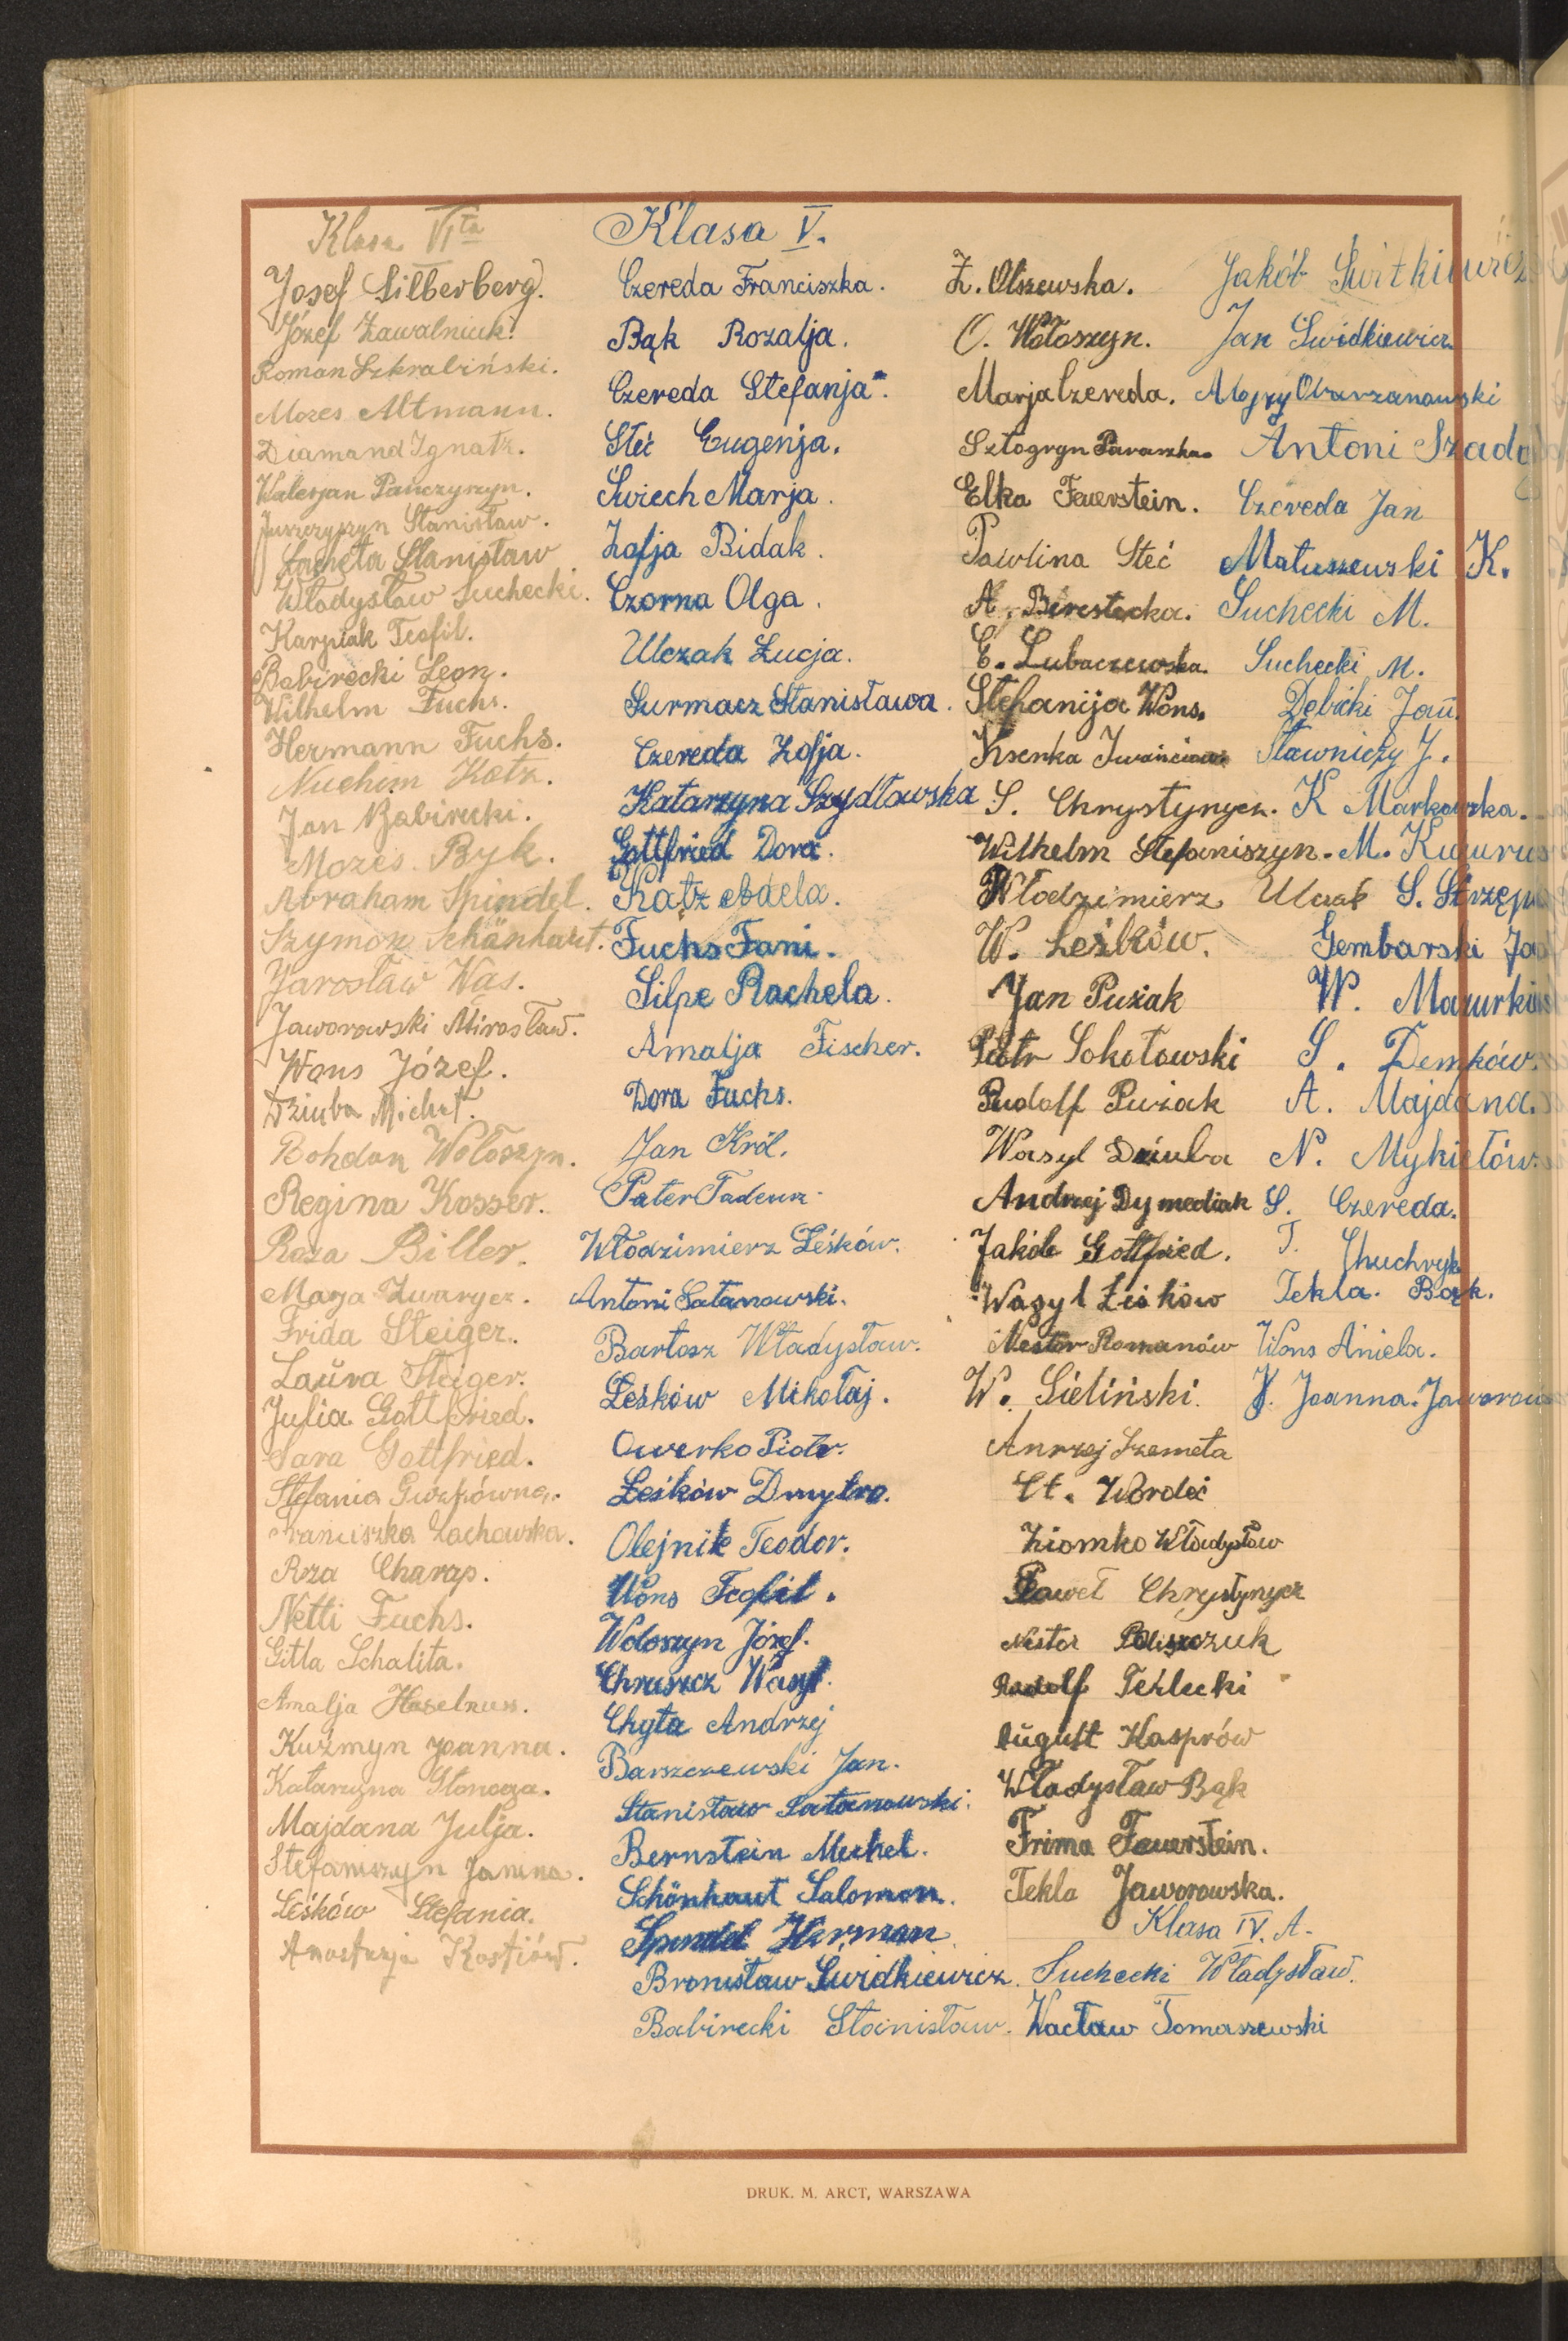 Klasa VIta
Josef Silberberg.
Józef Zawalniuk.
Roman Szkrabiński.
Mozes Altmann.
Diamand Ignatz.
Walerjan Panczyszyn.
Juszczyszyn Stanisław.
Łacheta Stanisław
Władysław Suchecki.
Karpiak Teofil.
Babirecki Leon.
Wilhelm Fuchs.
Hermann Fuchs.
Nuchim Katz.
Jan Babirecki.
Mozes Byk.
Abraham Spindel.
Szymon Schönhaut.
Jarosław Wąs.
Jaworowski Mirosław.
Wons Józef.
Dziuba Michał.
Bohdan Wołoszyn.
Regina Kosser.
Roza Biller.
Marja Zwarycz.
Frida Steiger.
Laura Steiger.
Julia Gottfried.
Sara Gottfried.
Stefania
Franciszka Lachowska.
Roza Charap.
Netti Fuchs.
Gitla Schalita.
Amalja Haselnuss.
Kuźmyn Joanna.
Katarzyna
Majdana Julja.
Stefaniszyn Janina.
Leśków Stefania.
Anastazja Kostiów.
Klasa V.
Czereda Franciszka.
Bąk Rozalja.
Czereda Stefanja.
Steć Eugenja.
Świech Marja.
Zofja Bidak.
Czorna Olga.
Ulczak Łucja.
Surmacz Stanisława.
Czereda Zofja.
Katarzyna Szydłowska
Gottfried Dora.
Katz Adela.
Fuchs Fani.
Silpe Rachela.
Amalja Fischer.
Dora Fuchs.
Jan Król.
Pater Tadeusz.
Włodzimierz Leśków.
Antoni Satanowski.
Bartosz Władysław.
Leśków Mikołaj.
Owerko Piotr.
Leśków Dmytro.
Olejnik Teodor.
Wons Teofil.
Woloszyn Józef.
Chruszcz Wasyl.
Chyta Andrzej
Barszczewski Jan.
Stanisław Satanowski.
Bernstein Mechel.
Schönhaut Salomon.
Spindel Herman
Bronisław Świdkiewicz.
Babirecki Stanisław.
Z. Olszewska.
O. Wołoszyn.
Marja Czereda.
Sztogryn Paraszka.
Elka Feuerstein.
Pawlina Steć
A. Birestecka.
E. Lubaczewska.
Stefanija Wons.
Ksenka
S. Chrystynycz.
Wilhelm Stefaniszyn.
Włodzimierz Ulczak
W. Leśków.
Jan Pużak
Piotr Sokołowski
Rudolf Pużak
Wasyl Dziuba
Andrzej Dymediak
Jakób Gottfried.
Wasyl Leśków
Nestor Romanów
W. Sieliński.
Anrzej Szemeta
St.
Ziomko Władysław
Paweł Chrystynycz
Nestor Poliszczuk
Rudolf Terlecki
August Kasprów
Władysław Bąk
Frima Feuerstein.
Tekla Jaworowska.
Klasa IV. A.
Suchecki Władysław.
Wacław Tomaszewski
Jakób Świtkiewicz
Jan Świdkiewicz
Alojzy Obarzanowski
Antoni
Czereda Jan
Matuszewski K.
Suchecki M.
Suchecki M.
Dębicki Jan.
Sławniczy J.
K Markowska.
M.
S.
Gembarski
W.
S. Demków.
A. Majdana.
N. Mykietów.
S. Czereda.
T. Chuchryk
Tekla. Bąk.
Wons Aniela.
J. Joanna.
DRUK. M. ARCT, WARSZAWA